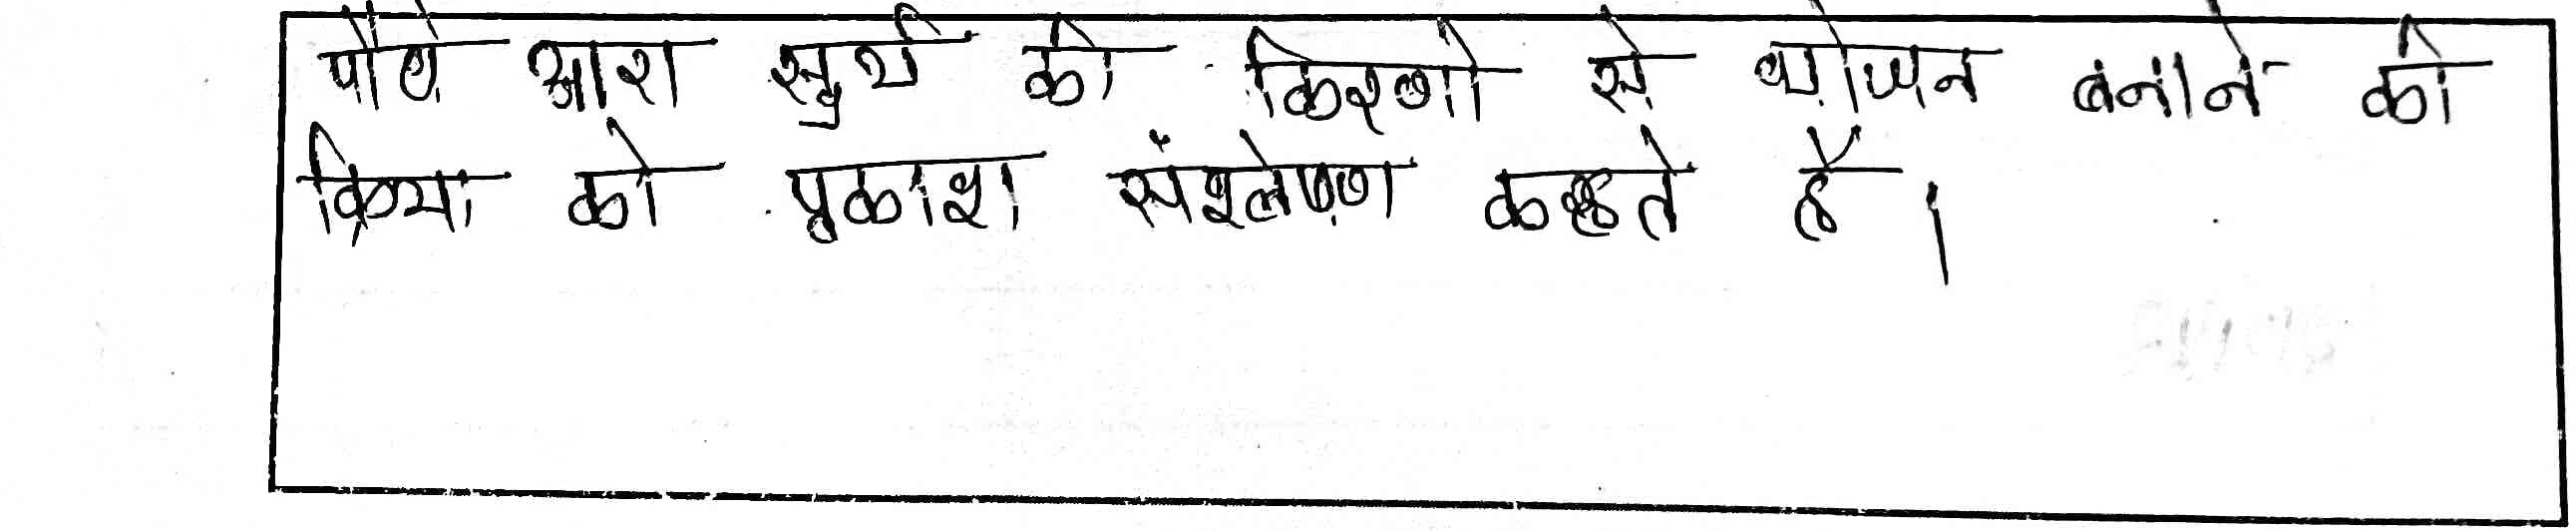 पौधे द्वारा सुर्य की किरणो से भोजन बनाने की
क्रिया को प्रकाश संश्लेषण कहते है।